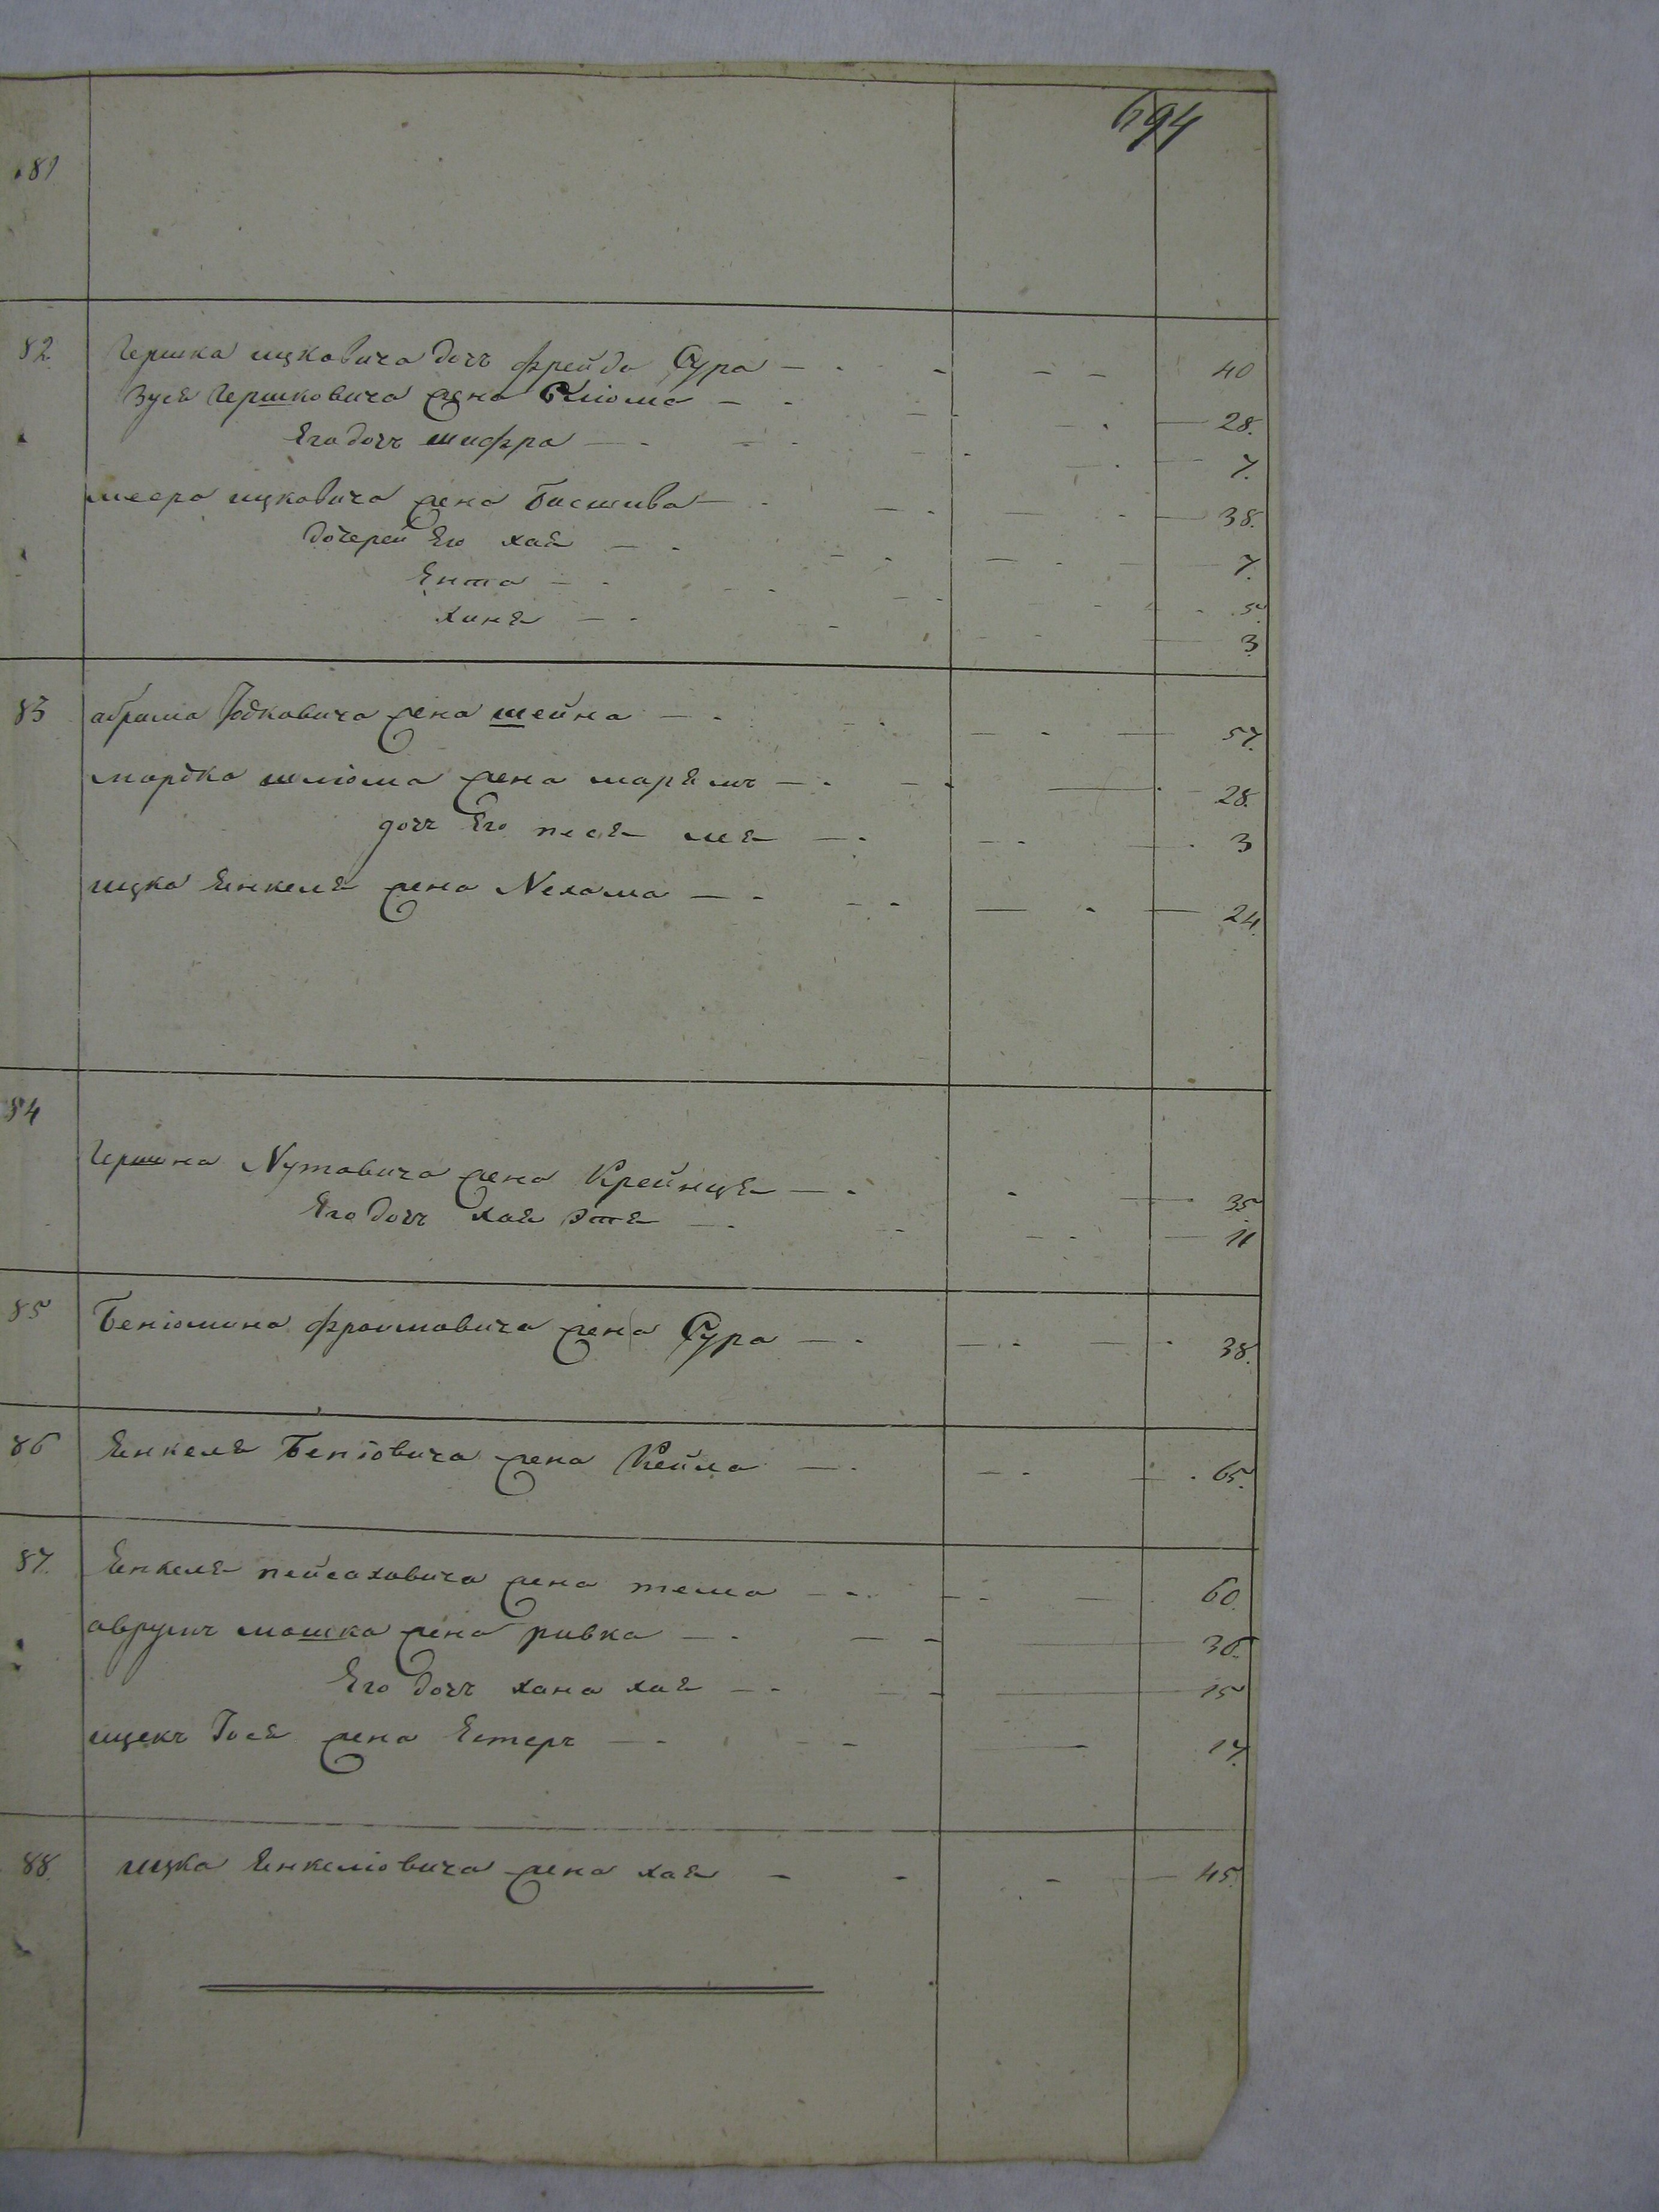 694
81
82. Гершка ицковича дочь фрейда Сура 40
Зуся Гершковича жена Слiома 28.
Его дочь шифра 7.
меера ицковича жена Басшива 38.
дочерей Его хая 7.
Ента 5.
хиня 3
83 абрама Iодковича жена шейна 57.
мордка шлiома жена марямъ 28.
дочь Его песя лея 3
ицка Янкеля жена Nехама 24.
84
Гершка Nутовича жена Крейнця 35
Его дочь хая Этя 11
85 Бенiомина фроимовича жена Сура 38.
86 Янкеля Бенiовича жена Кейла 65.
87. Янкеля пейсаховича жена тема 60.
аврумъ мошка жена ривка 36.
Его дочь хана хая 15
ицекъ Iося жена Естеръ 17.
88. ицка Янкелiовича жена хая 45.